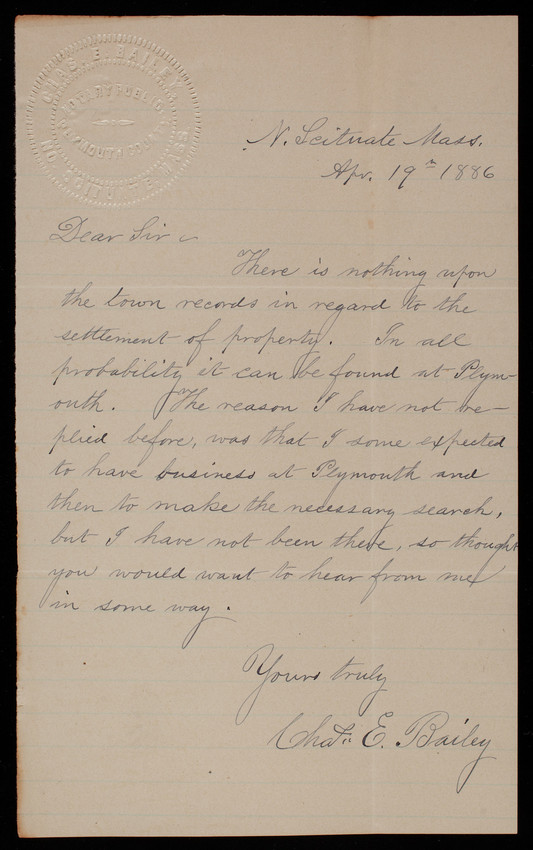 CHAS. E. BAILEY
NOTARY PUBLIC
PLYMOUTH COUNTY
NO. SCITUATE MASS
N. Scituate Mass.
Apr. 19th 1886
Dear Sir
There is nothing upon
the town records in regard to the
settlement of property. In all
probability it can be found at Plym-
outh. The reason I have not re-
plied before, was that I some expected
to have business at Plymouth and
then to make the necessary search,
but I have not been there, so thought
you would want to hear from me
in some way.
Yours truly
Chas. E. Bailey